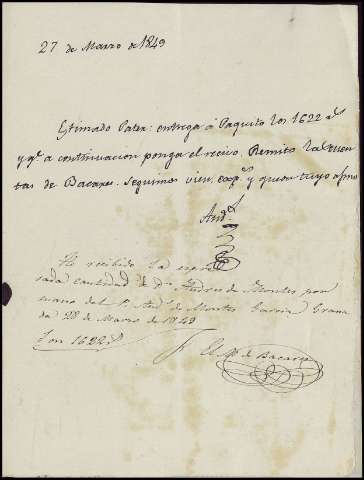 27 de Marzo de 1849
Estimado Pater: entrega á Paquito los 1622 rs
y q.e a continuacion ponga el recivo. Remito las cuen
tas de Bacares. Seguimos vien, y queda tuyo afmo
And.s
He recibido la espre
sada cantidad de D. Andres de Montes por
mano del Sr. And.s de Montes Garcia. Grana
da 28 de Marzo de 1849
Son 1622 rs
El M.s de Bacares